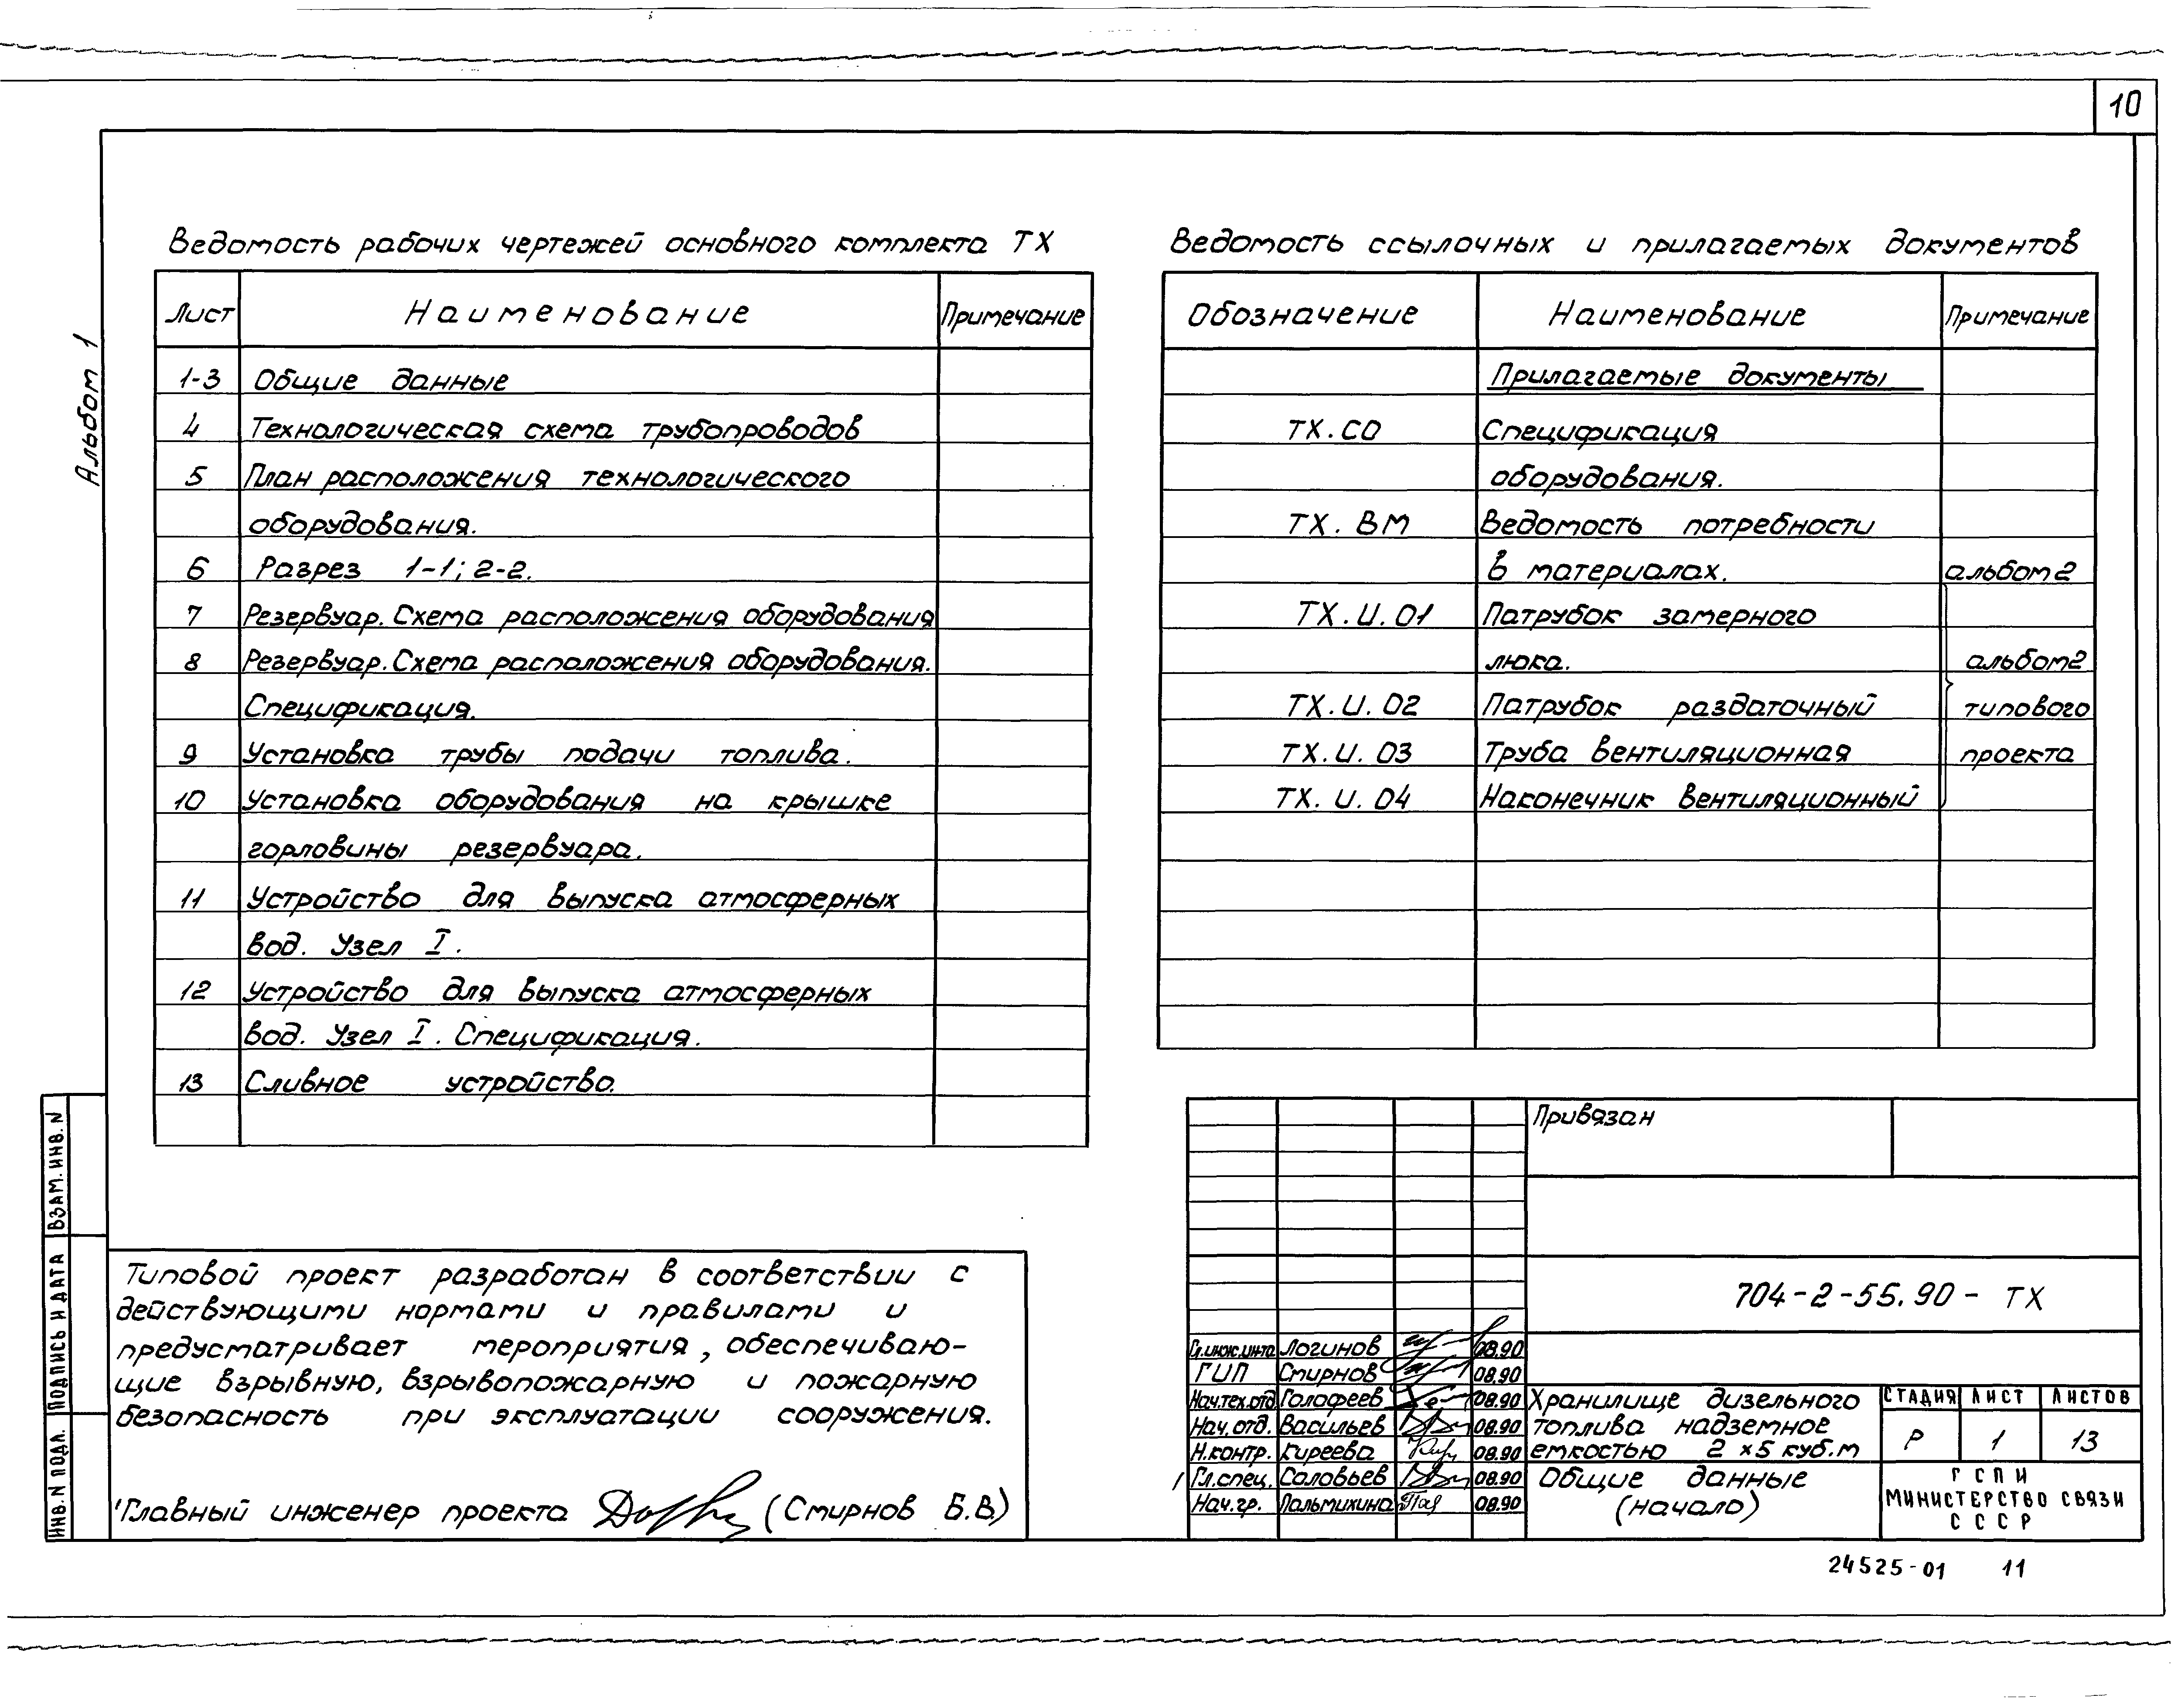 10
Альбом 1
Ведомость рабочих чертежей основного комплекта ТХ
Лист Наименование Примечание
1-3 Общие данные
4 Технологическая схема трубопроводов
5 План расположения технологического
оборудования.
6 Разрез 1-1; 2-2.
7 Резервуар. Схема расположения оборудования
8 Резервуар. Схема расположения оборудования.
Спецификация.
9 Установка трубы подачи топлива.
10 Установка оборудования на крышке
горловины резервуара.
11 Устройство для выпуска атмосферных
вод. Узел I.
12 Устройство для выпуска атмосферных
вод. Узел I. Спецификация.
13 Сливное устройство.
Ведомость ссылочных и прилагаемых документов
Обозначение Наименование Примечание
Прилагаемые документы
ТХ.СО Спецификация
оборудования.
ТХ. ВМ Ведомость потребности
в материалах. альбом 2
ТХ.И.01 Патрубок замерного
люка. альбом 2
ТХ.И.02 Патрубок раздаточный типового
ТХ.И.03 Труба вентиляционная проекта
ТХ.И.04 Наконечник вентиляционный
Типовой проект разработан в соответствии с
действующими нормами и правилами и
предусматривает мероприятия, обеспечиваю-
щие взрывную, взрывопожарную и пожарную
безопасность при эксплуатации сооружения.
Главный инженер проекта (Смирнов Б.В.)
ВЗАМ. ИНВ. N
ПОДПИСЬ И ДАТА
ИНВ. N ПОДЛ.
Привязан
704-2-55.90 - ТХ
Гл.инж.инта Логинов 08.90
ГИП Смирнов 08.90
Нач.тех.отд Голофеев 08.90
Нач.отд. Васильев 08.90
Н.контр. Киреева 08.90
Гл.спец. Соловьев 08.90
Нач.гр. Пальмихина 08.90
Хранилище дизельного
топлива надземное
емкостью 2 х 5 куб.м
Общие данные
(начало)
СТАДИЯ ЛИСТ ЛИСТОВ
Р 1 13
ГСПИ
МИНИСТЕРСТВО СВЯЗИ
СССР
24525-01 11